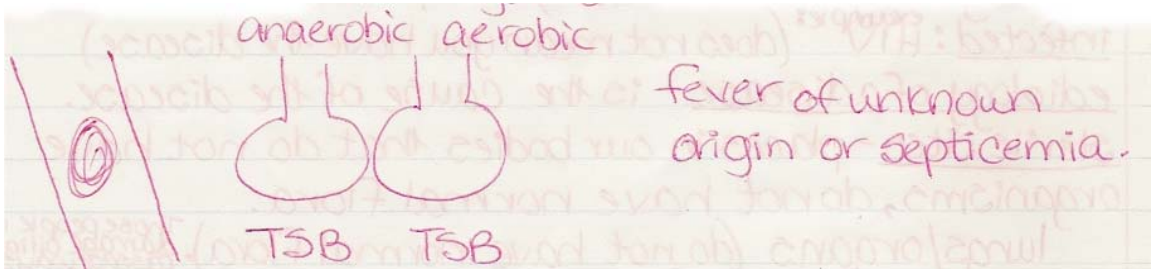 anaerobic aerobic
fever of unknown
origin or septicemia.
TSB TSB